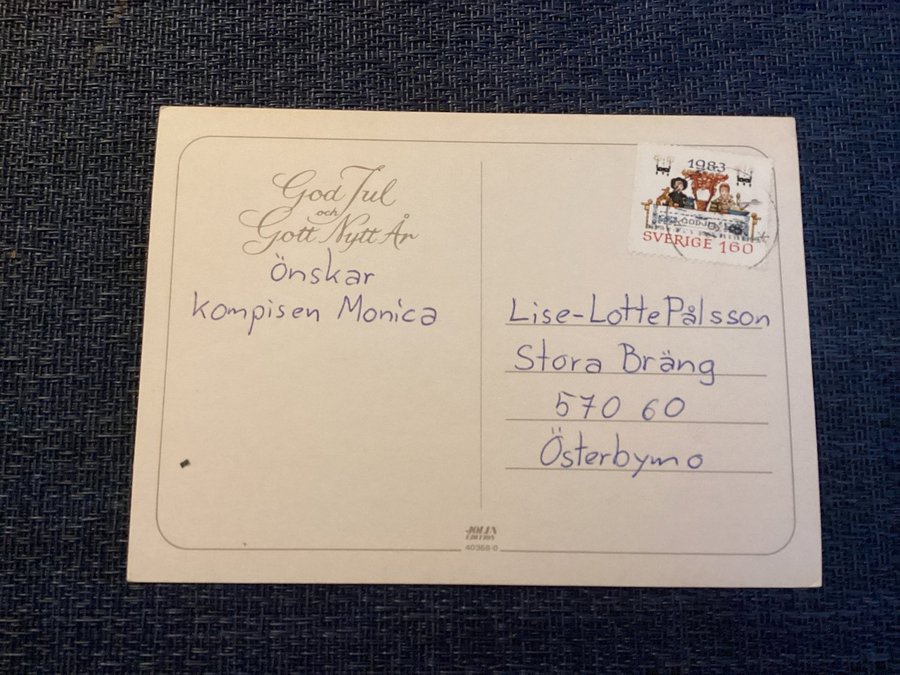 God Jul
och
Gott Nytt År
önskar
kompisen Monica
1983
GOD JUL
SVERIGE 160
Lise-Lotte Pålsson
Stora Bräng
570 60
Österbymo
EDITION
40368-0